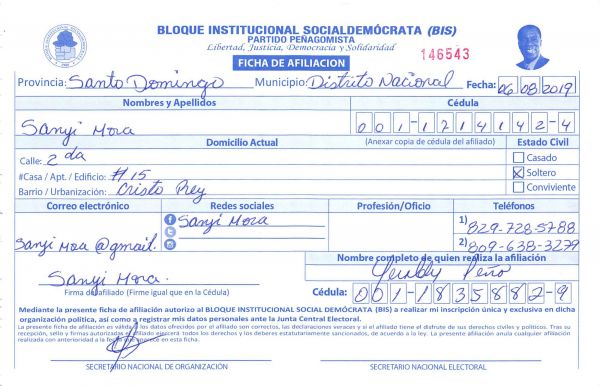 BLOQUE INSTITUCIONAL SOCIALDEMÓCRATA (BIS)
PARTIDO PEÑAGOMISTA
Libertad, Justicia, Democracia y Solidaridad
FICHA DE AFILIACION
146543
Provincia: Santo Domingo Municipio: Distrito Nacional Fecha: 06 08 2019
Nombres y Apellidos Cédula
Sanyi Mora 001-1714142-4
Domicilio Actual (Anexar copia de cédula del afiliado) Estado Civil
Calle: 2da Casado
#Casa / Apt. / Edificio: #15 Soltero
Barrio / Urbanización: Cristo Rey Conviviente
Correo electrónico Redes sociales Profesión/Oficio Teléfonos
Sanyi Mora 1) 829-728-5788
Sanyi Mora @gmail. 2) 809-638-3279
Nombre completo de quien realiza la afiliación
Sanyi Mora. Yeraldy Peña
Firma del afiliado (Firme igual que en la Cédula) Cédula: 001-1835882-9
Mediante la presente ficha de afiliación autorizo al BLOQUE INSTITUCIONAL SOCIAL DEMÓCRATA (BIS) a realizar mi inscripción única y exclusiva en dicha
organización política, así como a registrar mis datos personales ante la Junta Central Electoral.
La presente ficha de afiliación es válida si los datos ofrecidos por el afiliado son correctos, las declaraciones veraces y si el afiliado tiene el disfrute de sus derechos civiles y políticos. Tras su
recepción, sello y firmas autorizadas el afiliado ejercerá todos los derechos y los deberes estatutariamente sancionados, de acuerdo a la ley. La presente afiliación anula cualquier afiliación
realizada con anterioridad a la fecha que aparece en esta ficha.
SECRETARIO NACIONAL DE ORGANIZACIÓN SECRETARIO NACIONAL ELECTORAL